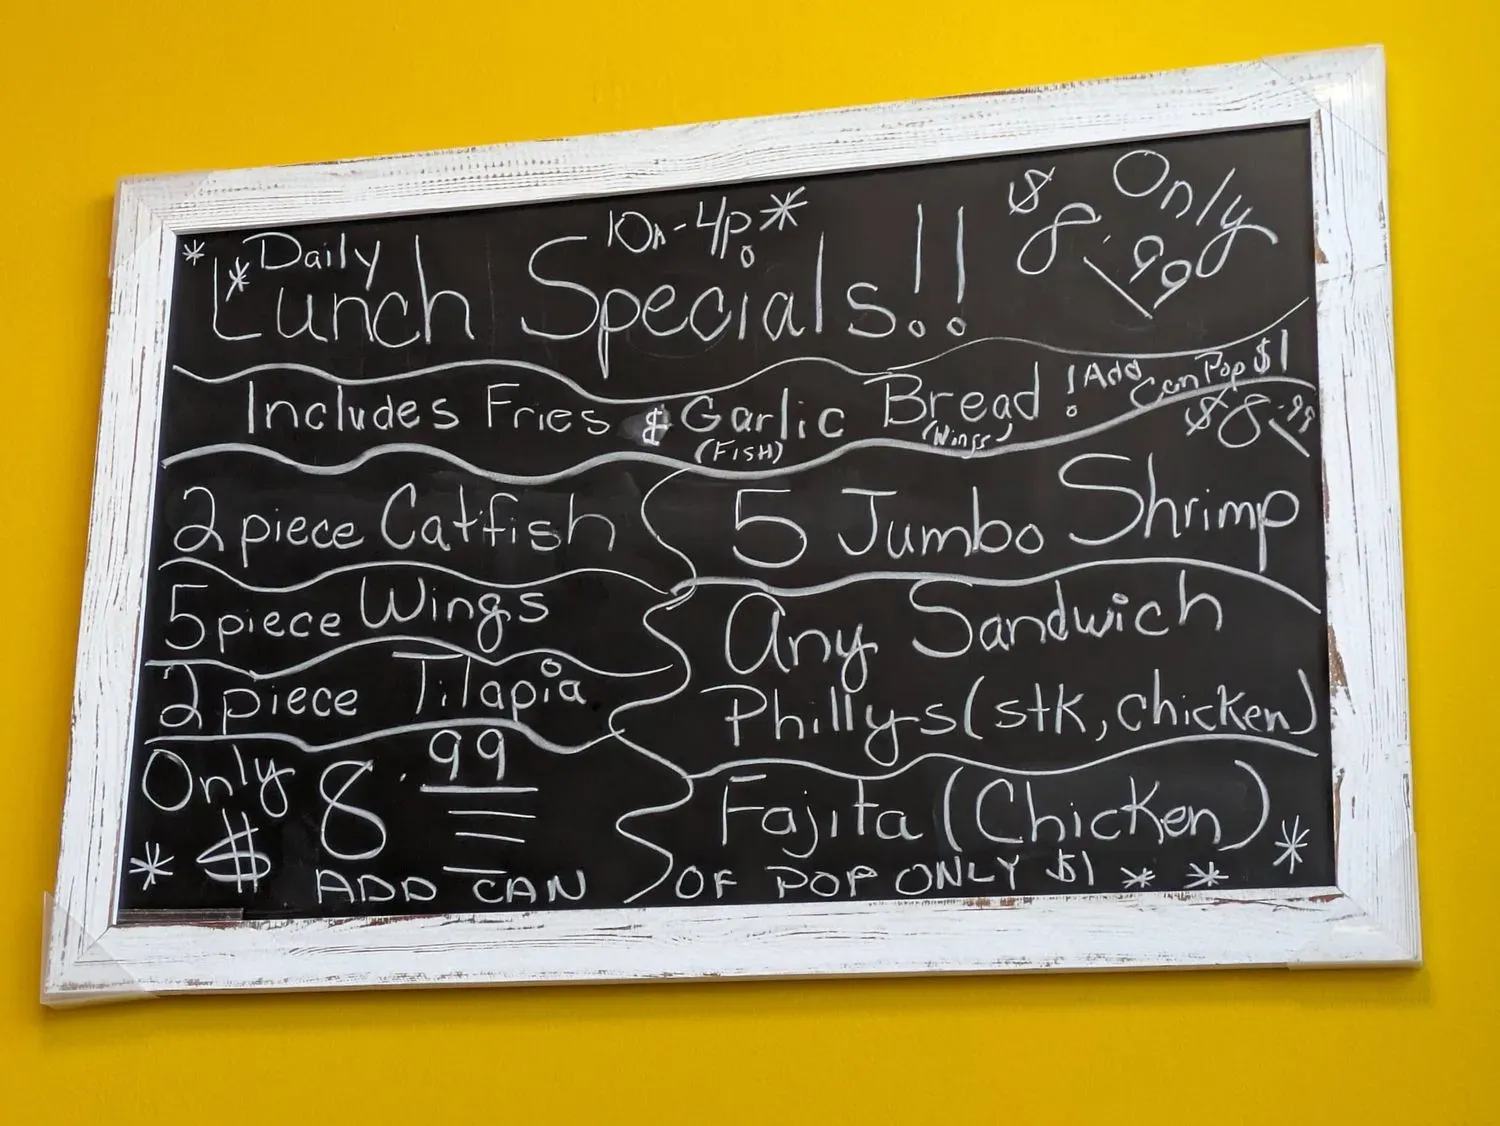 * * Daily 10a-4p *
Lunch Specials!!
Only
$8.99
Includes Fries & Garlic Bread! Add Can Pop $1
(FISH) (Wings)
$8.99
2 piece Catfish
5 piece Wings
2 piece Tilapia
Only
$8.99
5 Jumbo Shrimp
Any Sandwich
Philly's (stk, chicken)
Fajita (Chicken)
* ADD CAN OF POP ONLY $1 * * *